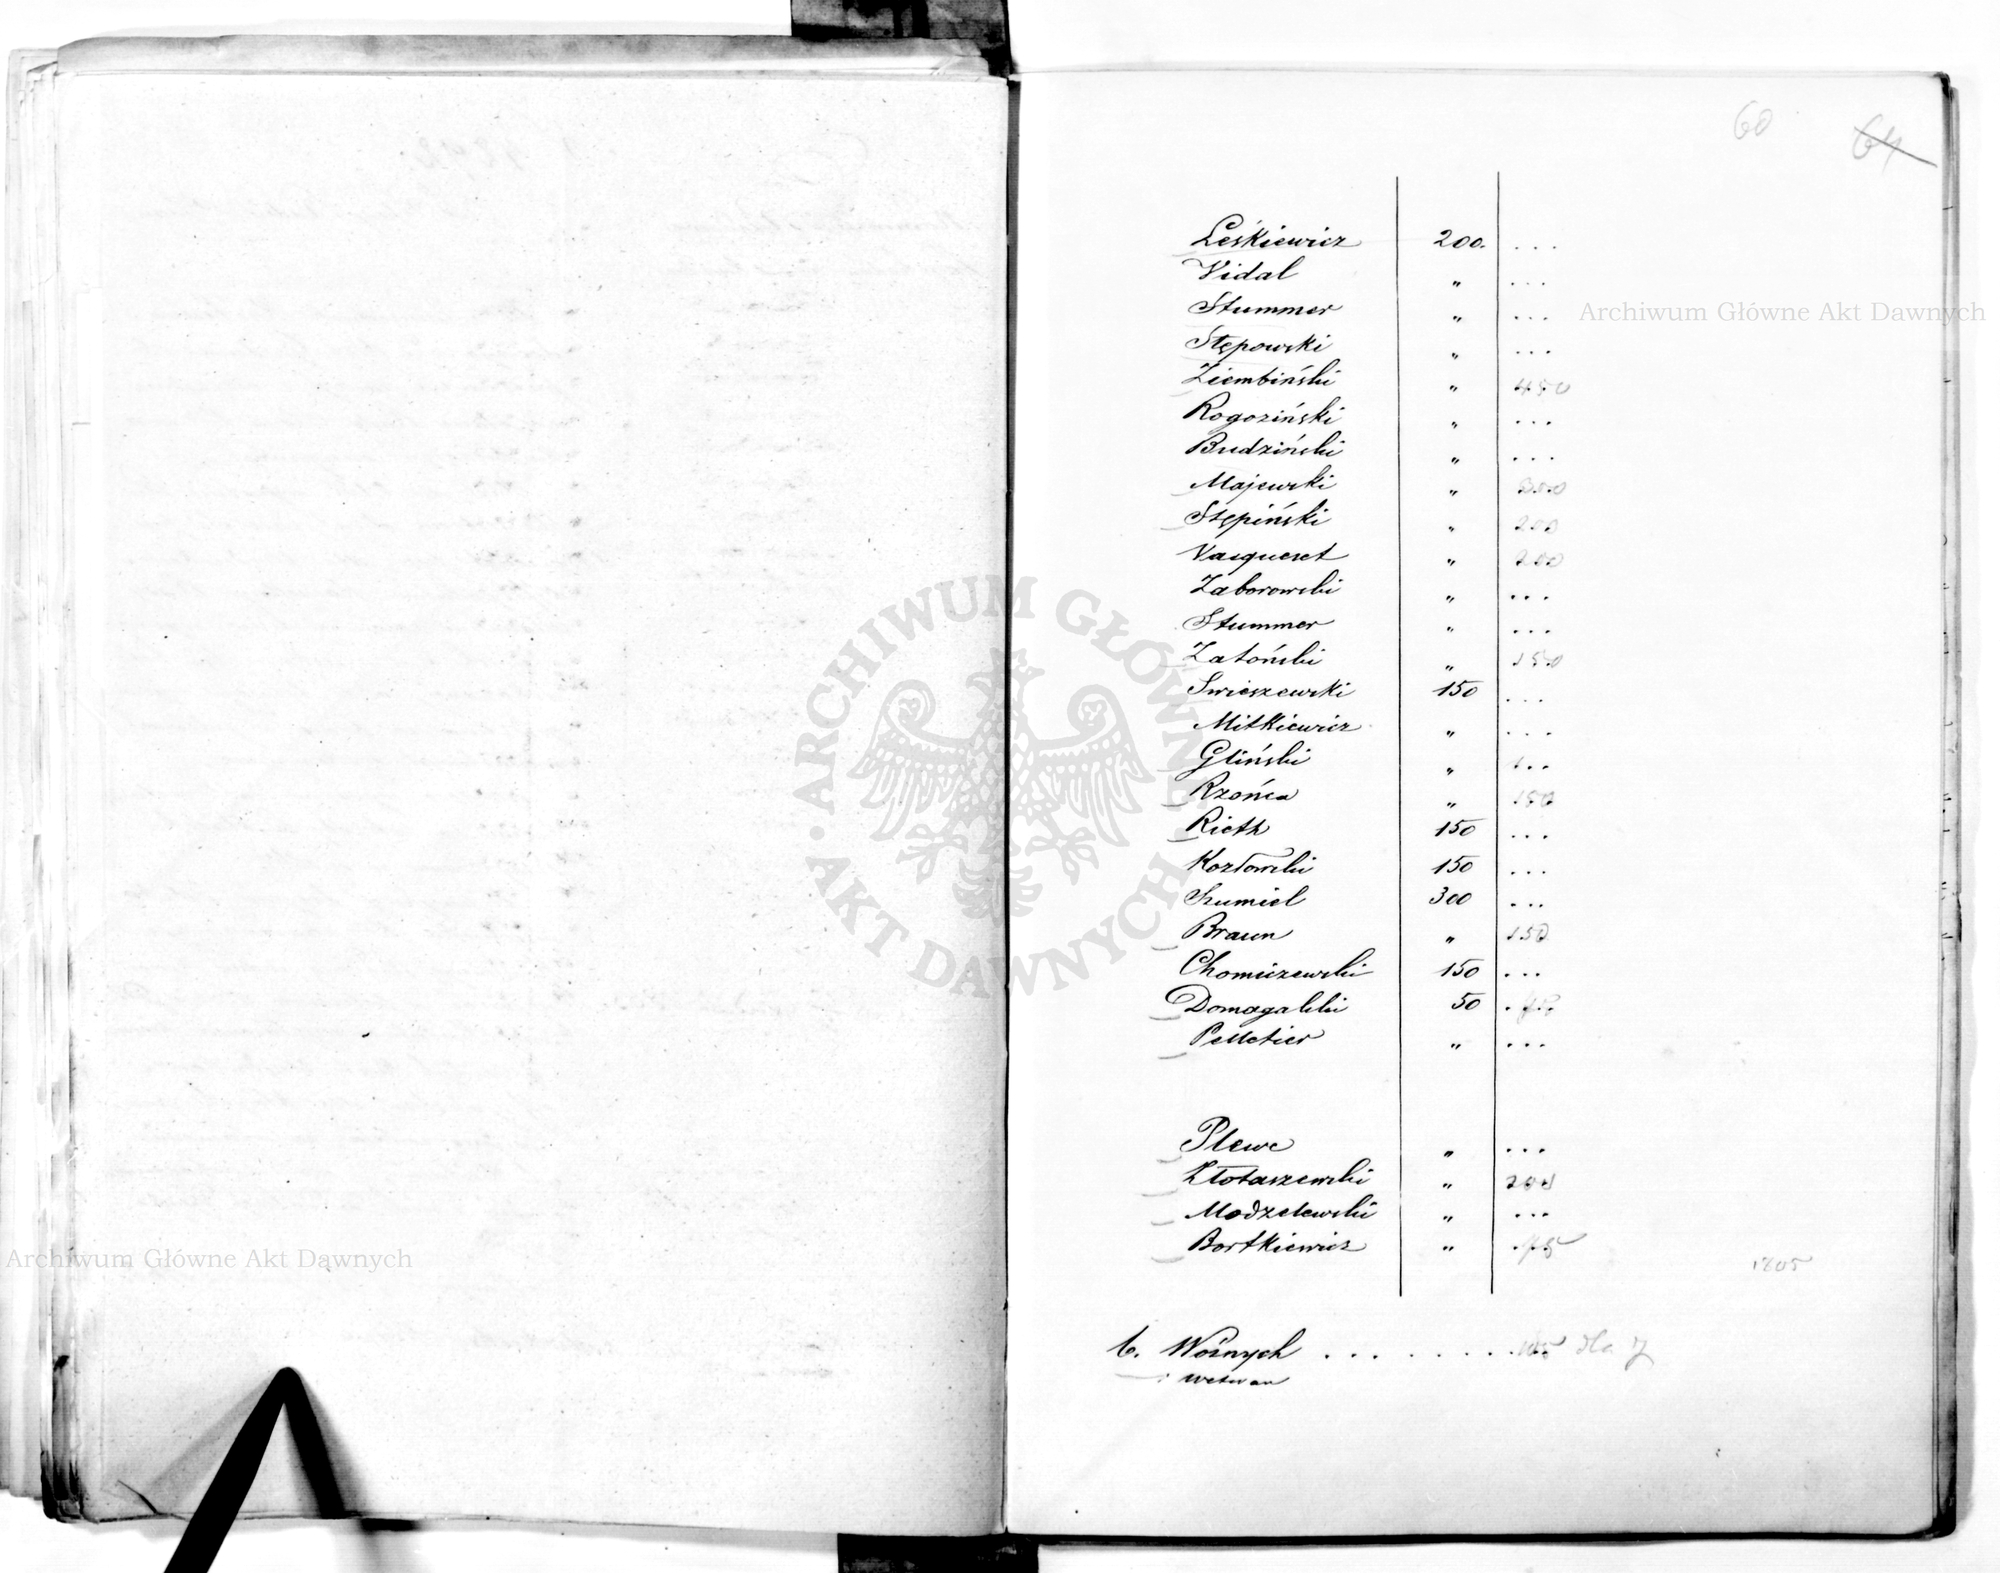 60
64
Leśkiewicz 200. ...
Vidal " ...
Stummer " ...
Stępowski " ...
Ziembiński " 450
Rogoziński " ...
Budziński " ...
Majewski " 300
Stępiński " 200
Vasquezet " 200
Zaborowski " ...
Stummer " ...
Zatoński " 150
Swieszewski 150 ...
Mitkiewicz " ...
Gliński " 1..
Rzońca " 150
Rieth 150 ...
Kozłowski 150 ...
Szumiel 300 ...
Braun " 150
Chomiczewski 150 ...
Domagalski 50 . 75
Pelletier " ...
Plewe " ...
Złotaszewski " 200
Modzelewski " ...
Bortkiewicz " .75
1805
b. Woźnych . . . . . . . . 105
ARCHIWUM GŁÓWNE · AKT DAWNYCH ·
Archiwum Główne Akt Dawnych
Archiwum Główne Akt Dawnych